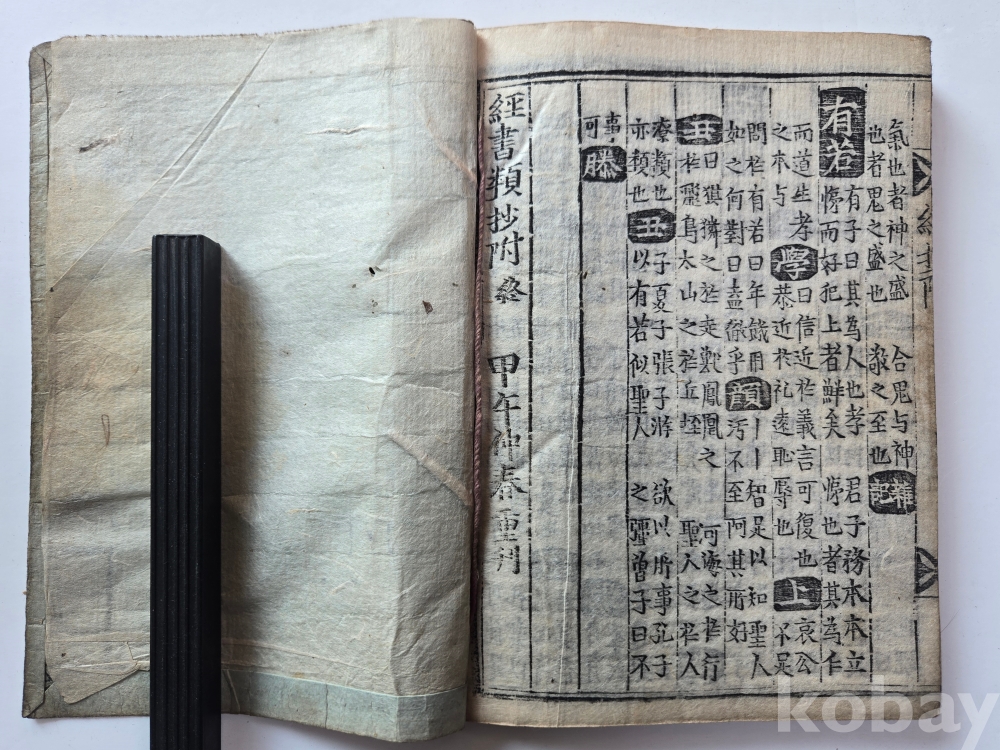 氣也者神之盛 合鬼与神
也者鬼之盛也 敎之至也 禮記
有若 有子曰其為人也孝 君子務本本立
悌而好犯上者鮮矣 悌也者其為仁
而道生孝 學 曰信近於義言可復也 上 哀公
之本与 恭近於礼遠恥辱也 不足
問於有若曰年饑用 顔 丨丨智足以知聖人
如之何對曰盍徹乎 汚不至阿其所好
丑 曰猉獜之於走獸鳳凰之 河海之於行
於飛鳥太山之於丘垤 聖人之於人
類也 丑 子夏子張子游 欲以所事孔子
亦類也 以有若似聖人 之彊曾子曰不
事 滕
可
經書類抄附終 甲午仲春重刊
kobay